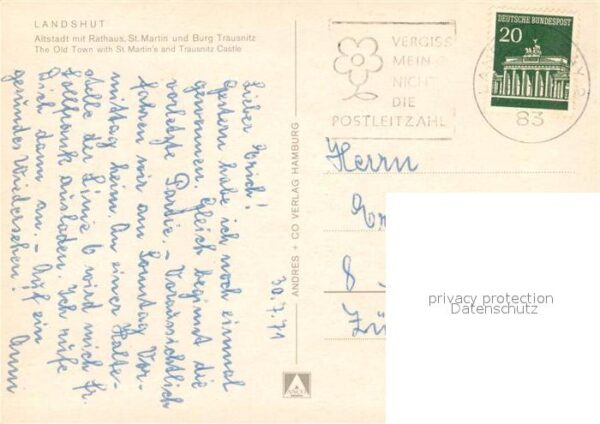 LANDSHUT
Altstadt mit Rathaus, St. Martin und Burg Trausnitz
The Old Town with St Martin's and Trausnitz Castle
30.7.71
Lieber Erich!
Gestern habe ich noch einmal
gewonnen. Gleich beginnt die
vorletzte Partie. - Voraussichtlich
fahren wir am Sonntag Vor-
mittag heim. An einer Halte-
stelle der Linie 6 wird mich Fr.
ausladen. Ich rufe
Dich dann an. - Auf ein
gesundes Wiedersehen! Ann
ANDRES + CO VERLAG HAMBURG
ANCO
VERGISS
MEIN
NICHT
DIE
POSTLEITZAHL
DEUTSCHE BUNDESPOST
20
83
Herrn
8
privacy protection
Datenschutz